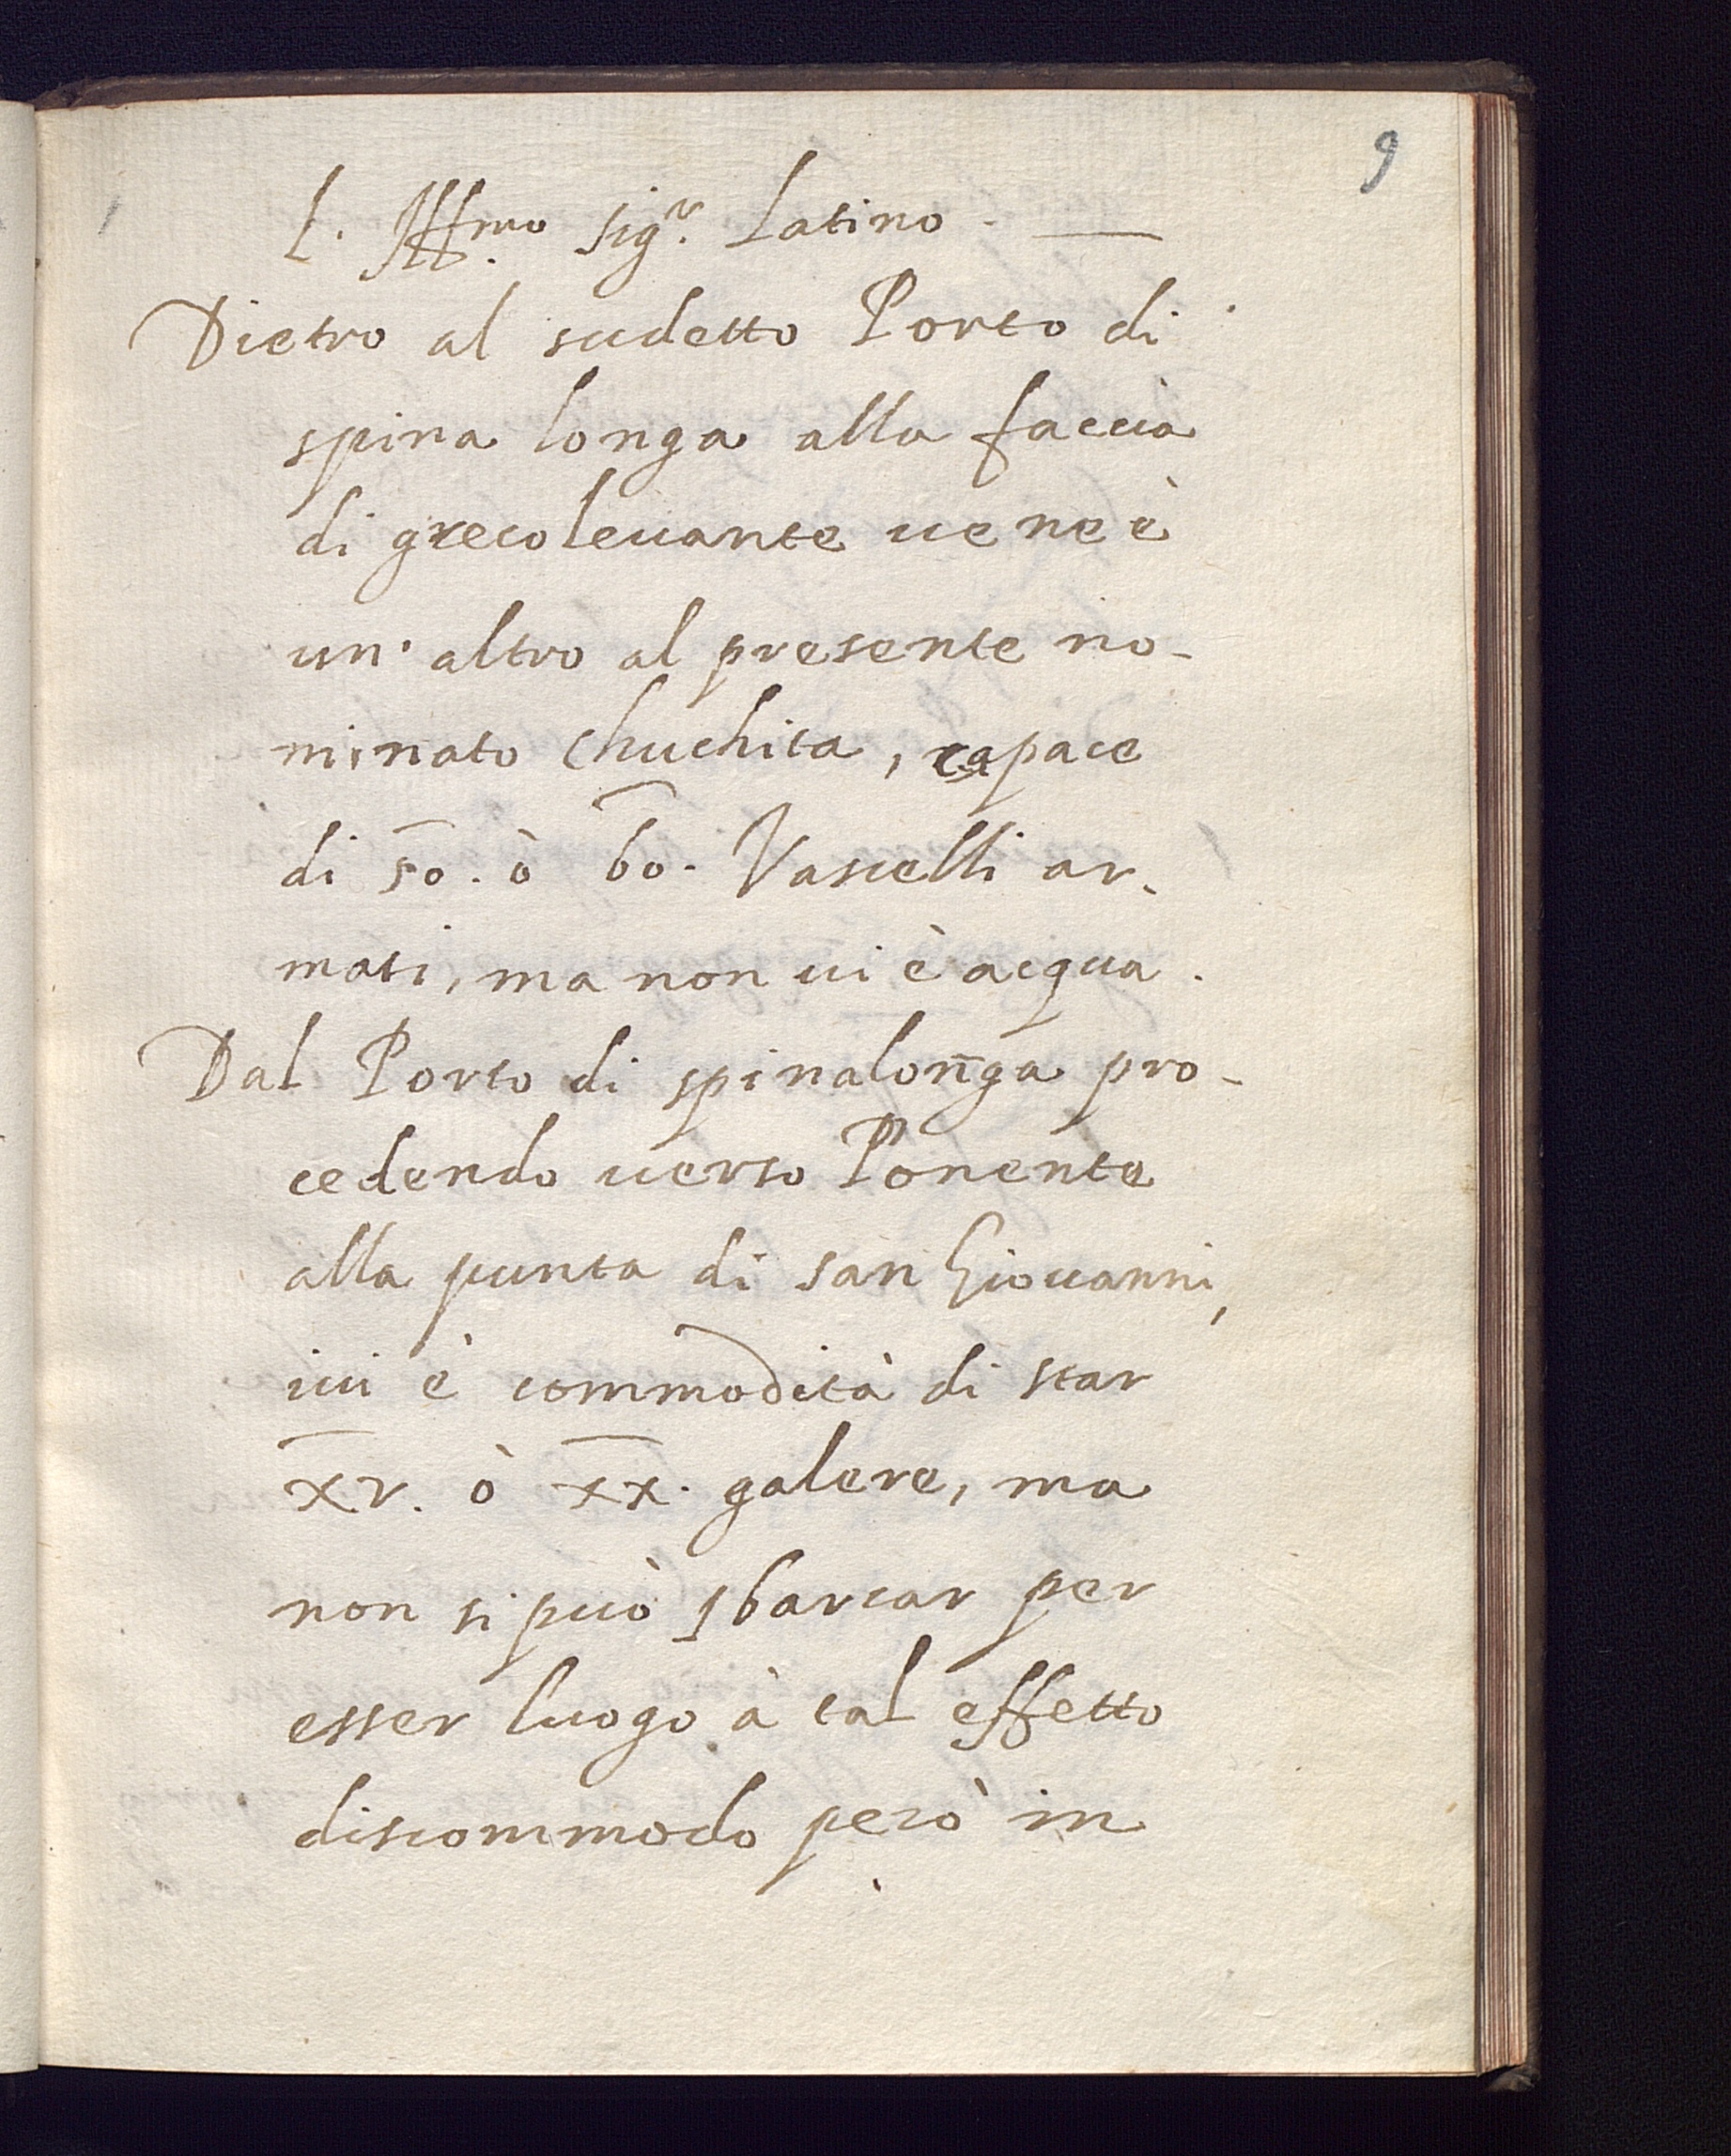 9
L. Ill.mo Sig.r Latino.
Dietro al sudetto Porto di
spina longa alla faccia
di grecoleuante ue ne è
un' altro al presente no-
minato Chuchita, capace
di 50. ò 60. Vascelli ar-
mati, ma non ui è acqua.
Dal Porto di spinalonga pro-
cedendo uerso Ponente
alla punta di san Giouanni,
iui è commodità di star
xv. ò xx. galere, ma
non si può sbarcar per
esser luogo à tal effetto
discommodo però in